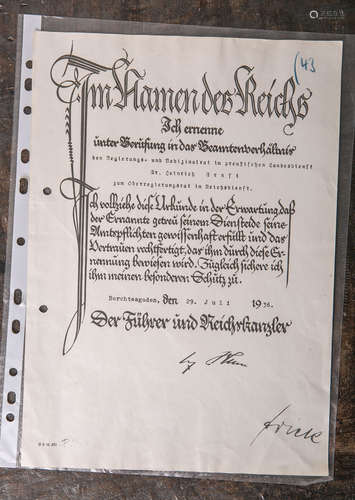 (43
Im Namen des Reichs
Ich ernenne
unter Berufung in das Beamtenverhältnis
den Regierungs- und Medizinalrat im preußischen Landesdienst
Dr. Heinrich
zum Oberregierungsrat im Reichsdienst.
Ich vollziehe diese Urkunde in der Erwartung, daß
der Ernannte getreu seinem Diensteide seine
Amtspflichten gewissenhaft erfüllt und das
Vertrauen rechtfertigt, das ihm durch diese Er-
nennung bewiesen wird. Zugleich sichere ich
ihm meinen besonderen Schutz zu.
Berchtesgaden, den 29. Juli 1936.
Der Führer und Reichskanzler
Frick